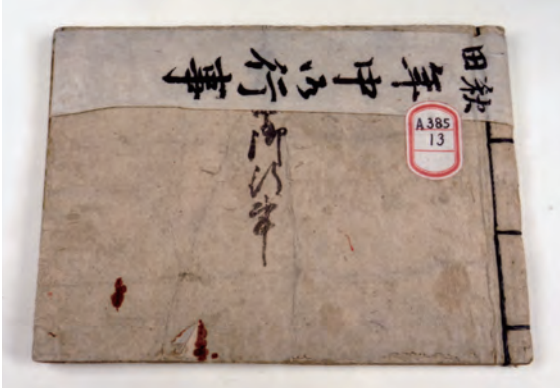 秋田
年中行事
御行事
A385
13